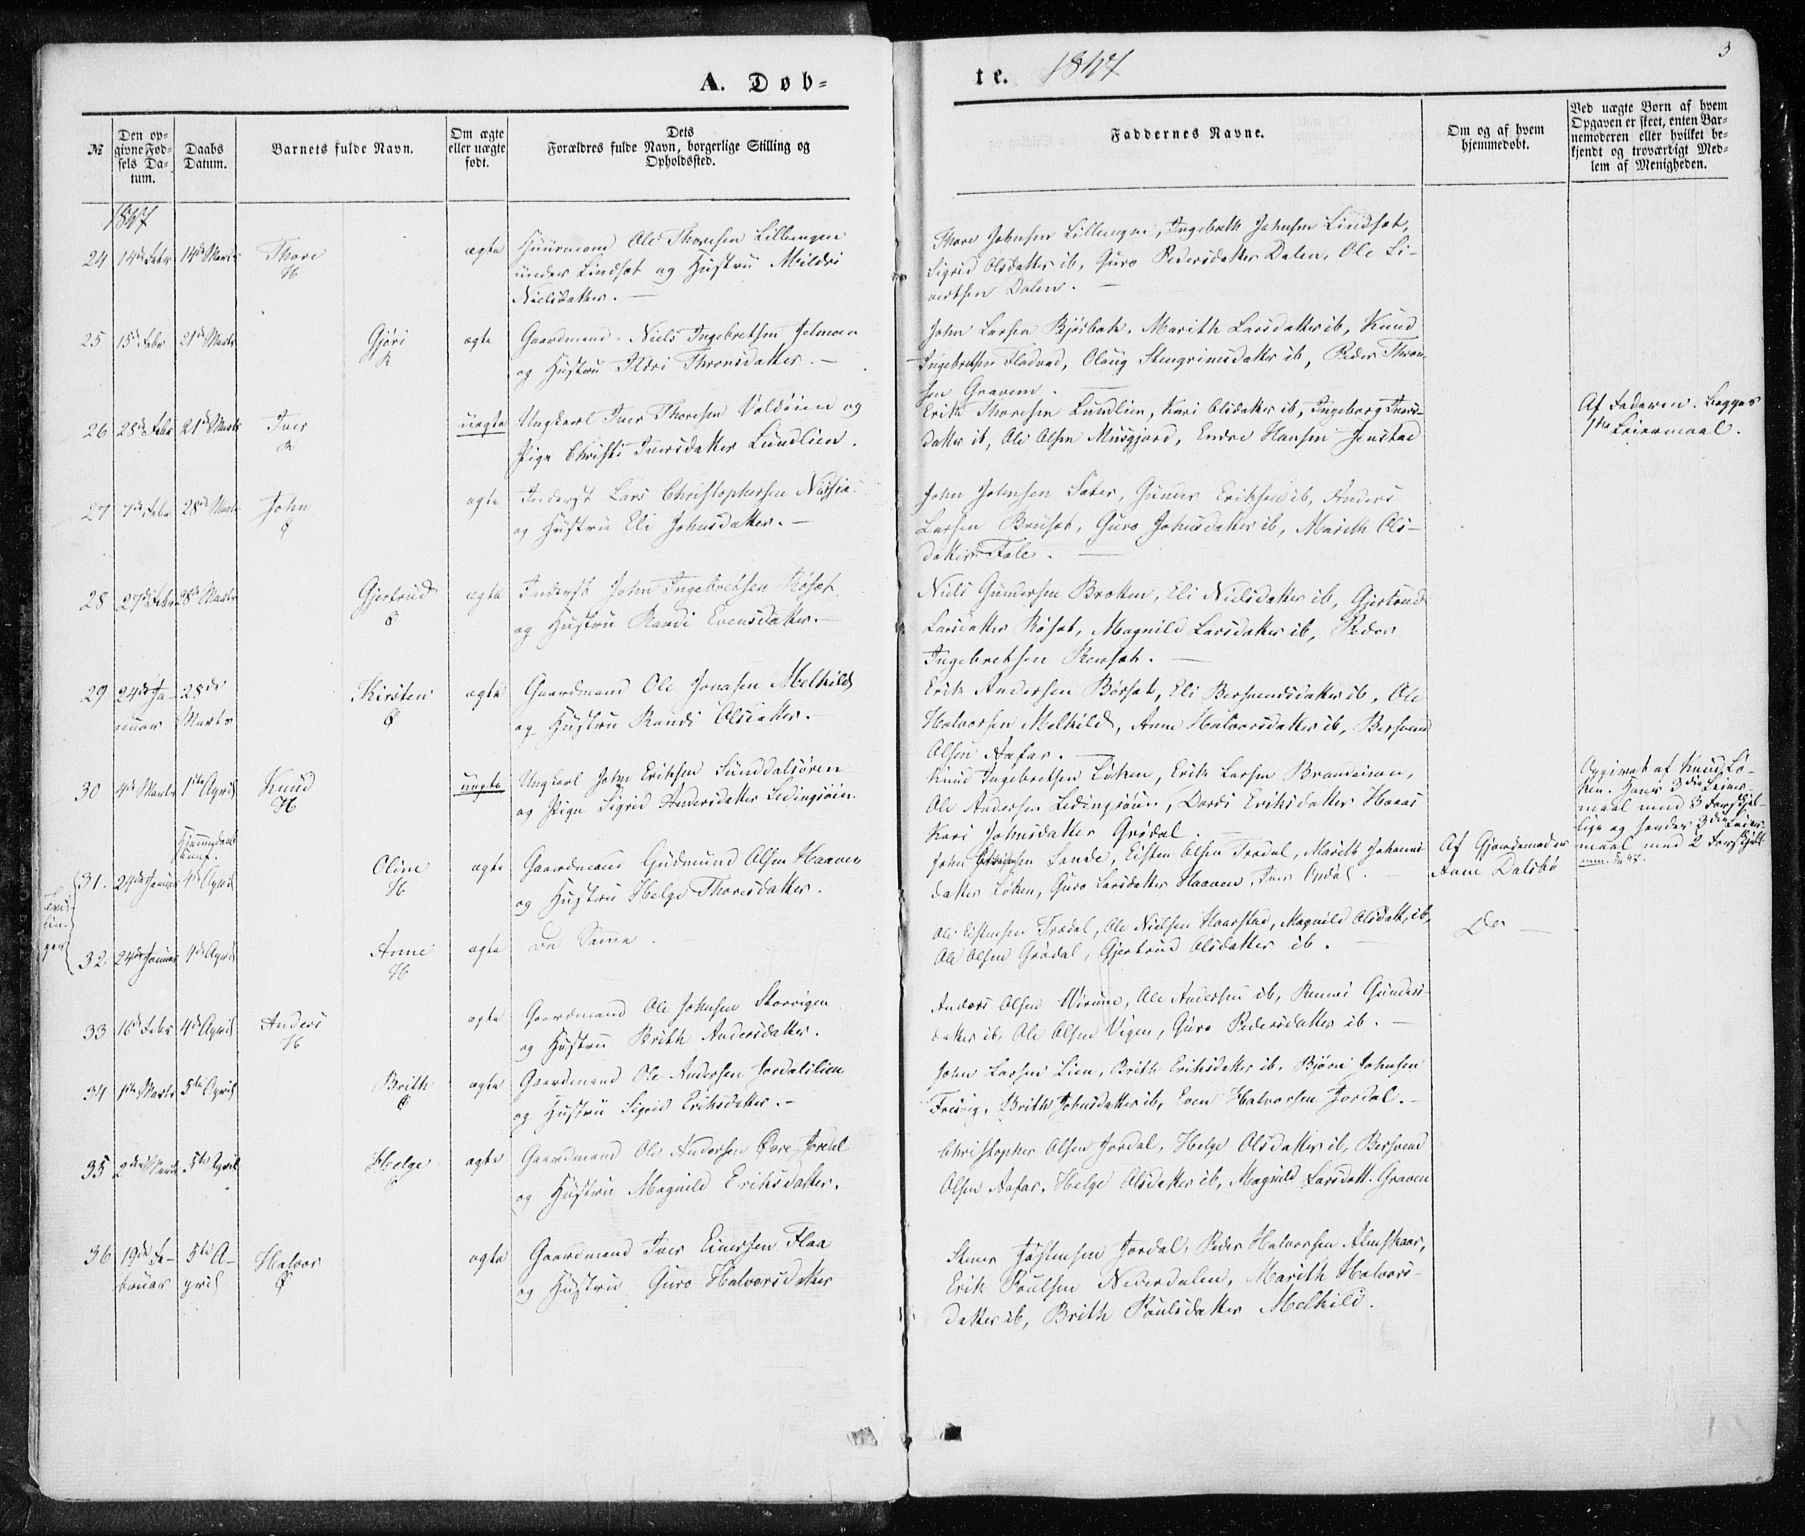 A. Døb-
te. 1847
3
№
Den op-
givne Fød-
sels Da-
tum.
Daabs
Datum.
Barnets fulde Navn.
Om ægte
eller uægte
født.
Dets
Forældres fulde Navn, borgerlige Stilling og
Opholdssted.
Faddernes Navne.
Om og af hvem
hjemmedøbt.
Ved uægte Børn af hvem
Opgaven er skeet, enten Bar-
nemoderen eller hvilket be-
kjendt og troværdigt Med-
lem af Menigheden.
1847
24 14de Febr 14de Marts Thore ægte Huusmand Ole Thoresen Lillengen
H under Lindsæt og Hustru Mildri
Nielsdatter. —
Thore Johnsen Lillengen, Ingebrith Johnsen Lindset,
Sigrid Olsdatter ib, Guro Pedersdatter Dalen, Ole Si-
vertsen Dalen. —
25 15de Febr 21de Marts Gjøri ægte Gaardmand Niels Ingebretsen
og Hustru Ildri Thronsdatter. —
John Larsen Bjørbæk, Marith Larsdatter ib, Knud
Ingebretsen Fladvad, Olaug Stengrimsdatter ib, Peder Thron-
sen Gravem.
26 28de Febr 21de Marts Iver uægte Ungkarl Iver Thoresen Voldøien og
Pige Christi Iversdatter Lundlien.
Erik Thoresen Lundlien, Kari Olsdatter ib, Ingeborg Ivers-
datter ib, Ole Olsen Musgjerd, Endre Hansen Jenstad
Af Faderen. Begges
1ste Leiermaal.
27 7de Febr 28de Marts John ægte Inderst Lars Christophersen
og Hustru Eli Johnsdatter. —
John Johnsen Sæter, Gunner Eriksen ib, Anders
Larsen Brusæt, Guro Johnsdatter ib, Marith Ols-
datter Fale. —
28 27de Febr 28de Marts Gjertrud ægte Inderst John Ingebretsen Røsæt
og Hustru Randi Evensdatter. —
Niels Gundersen Brekken, Eli Nielsdatter ib, Gjertrud
Larsdatter Røsæt, Magnild Larsdatter ib, Peder
Ingebretsen
29 24de Ja- 28de Kirsten ægte Gaardmand Ole Jonasen Melkild
nuar Marts og Hustru Randi Olsdatter. —
Erik Andersen Børsæt, Eli Bersvendsdatter ib, Ole
Halvorsen Melkild, Anne Halvorsdatter ib, Bersvend
Olsen Aafar. —
30 4de Marts 1ste April Knud uægte Ungkarl John Eriksen Sunddalsøren
H og Pige Sigrid Andersdatter Ledingsøien
Knud Ingebretsen Løken, Erik Larsen Brandeinen,
Ole Andersen Ledingsøien, Dordi Eriksdatter Hoaas
Kari Johnsdatter Grødal
Opgivet af Knud Lø-
ken. Hans 3die Leier-
maal med 3 forskjel-
lige og hendes 3die Leier-
maal med 2 forskjell
31. 24de Januar 4de April Oline ægte Gaardmand Gudmund Olsen Haaven
H og Hustru Helge Thoresdatter.
John Lande, Eisten Olsen Trædal, Marith Johannis-
datter Løken, Guro Larsdatter Haaven, Iver Opdal. —
Af Gjordemoder
Anne Dalsbø
32. 24de Januar 4de April Anne ægte De Samme.
H
Ole Eistensen Trædal, Ole Nielsen Haarstad, Magnild Olsdatt. ib,
Ole Olsen Grødal, Gjertrud Olsdatter ib. —
Do —
33 16de Febr 4de April Anders ægte Gaardmand Ole Johnsen Storvigen
H og Hustru Brith Andersdatter.
Anders Olsen Wirum, Ole Andersen ib, Gunders-
datter ib, Ole Olsen Vigen, Guro Pedersdatter ib. —
34 1ste Marts 5te April Brith ægte Gaardmand Ole Andersen Jordalslien
og Hustru Sigrid Eriksdatter. —
John Larsen Lien, Brith Eriksdatter ib, Bjørn Johnsen
Fredvig, Brith Johnsdatter ib, Even Halvorsen Jordal. —
35 2den Marts 5te April Helge ægte Gaardmand Ole Andersen Øvre Jordal
og Hustru Magnild Eriksdatter.
Christopher Olsen Jordal, Helge Olsdatter ib, Bersvend
Olsen Aafar, Helge Olsdatter ib, Magnild Larsdatt. Graven
36 19de Fe- 5te A- Halvor ægte Gaardmand Iver Einersen Flaa
bruar pril og Hustru Guro Halvorsdatter
Stener Jøstensen Jordal, Peder Halvorsen Almskaar,
Erik Poulsen Nederdalen, Marith Halvors-
datter ib, Brith Poulsdatter Melkild.